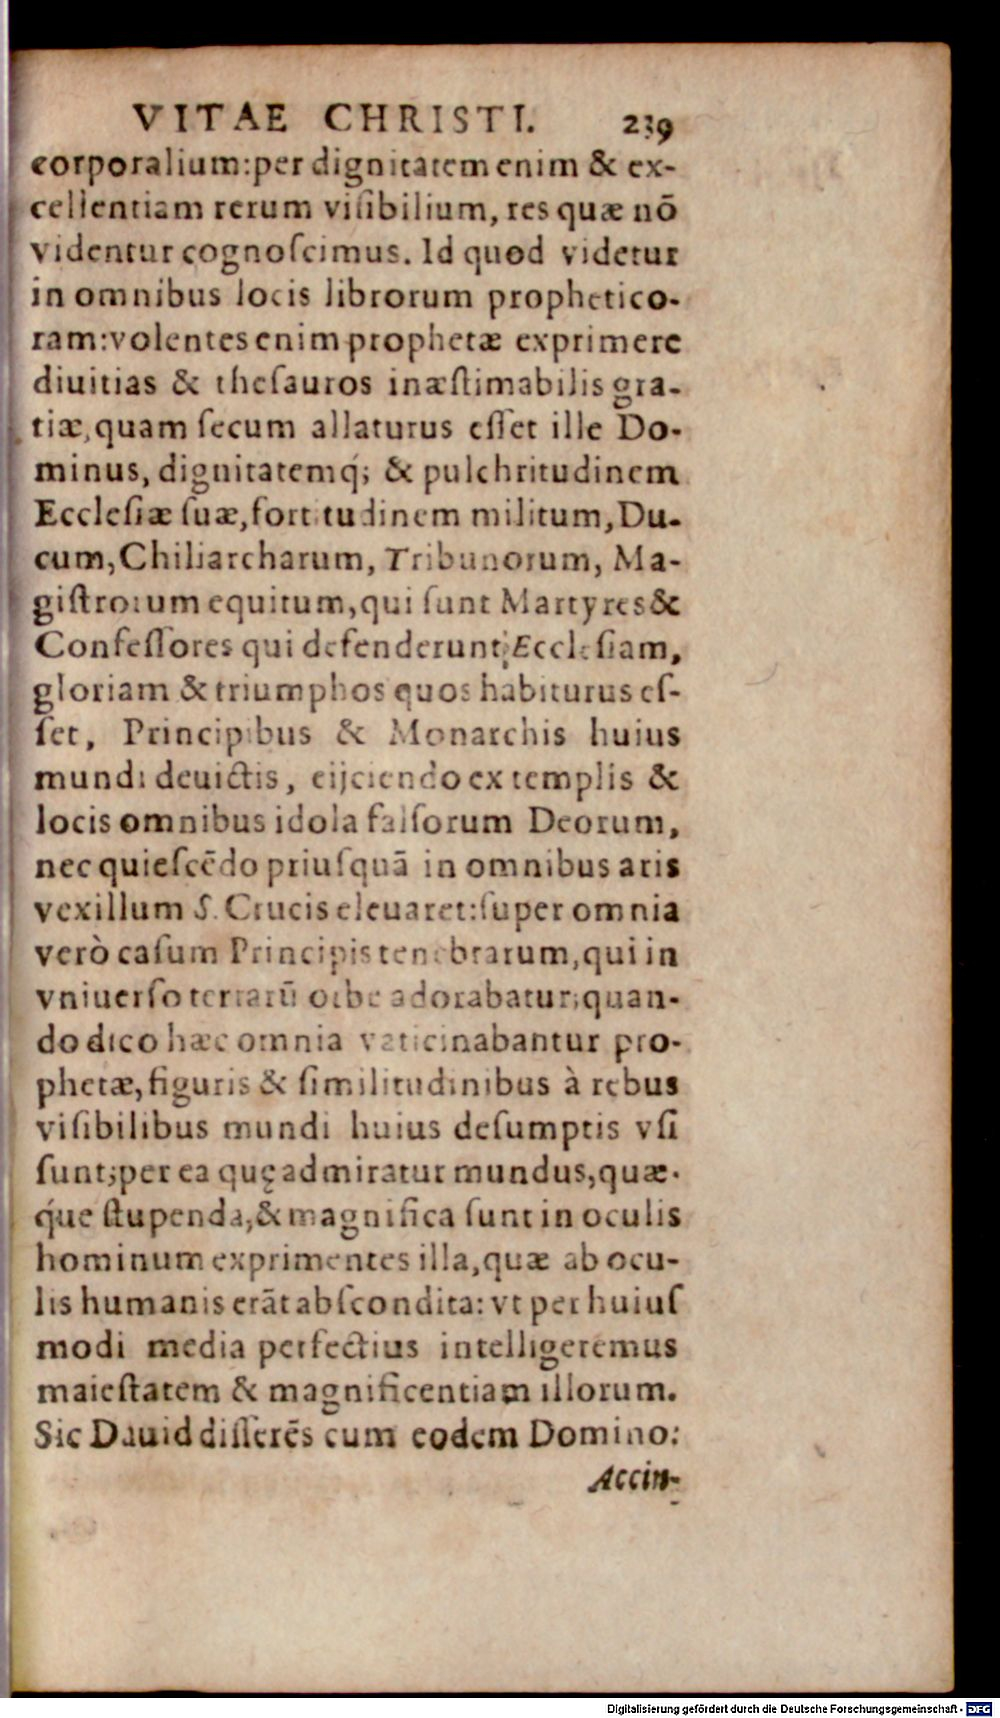 VITAE CHRISTI. 239
corporalium:per dignitatem enim & ex-
cellentiam rerum visibilium, res quæ nō
videntur cognoſcimus. Id quod videtur
in omnibus locis librorum prophetico-
ram:volentes enim prophetæ exprimere
diuitias & theſauros inæſtimabilis gra-
tiæ,quam ſecum allaturus eſſet ille Do-
minus, dignitatemq́; & pulchritudinem
Eccleſiæ ſuæ,fortitudinem militum,Du-
cum,Chiliarcharum, Tribunorum, Ma-
giſtrorum equitum,qui ſunt Martyres &
Confeſſores qui defenderunt; Eccleſiam,
gloriam & triumphos quos habiturus eſ-
ſet, Principibus & Monarchis huius
mundi deuictis, eijciendo ex templis &
locis omnibus idola falſorum Deorum,
nec quieſcēdo priuſquā in omnibus aris
vexillum S. Crucis eleuaret:ſuper omnia
verò caſum Principis tenebrarum,qui in
vniuerſo terrarū orbe adorabatur;quan-
do dico hæc omnia vaticinabantur pro-
phetæ,figuris & ſimilitudinibus à rebus
viſibilibus mundi huius deſumptis vſi
ſunt;per ea quę admiratur mundus,quæ-
q́ue ſtupenda,& magnifica ſunt in oculis
hominum exprimentes illa,quæ ab ocu-
lis humanis erāt abſcondita: vt per huiuſ
modi media perfectius intelligeremus
maieſtatem & magnificentiam illorum.
Sic Dauid diſſerēs cum eodem Domino:
Accin-
Digitalisierung gefördert durch die Deutsche Forschungsgemeinschaft - DFG